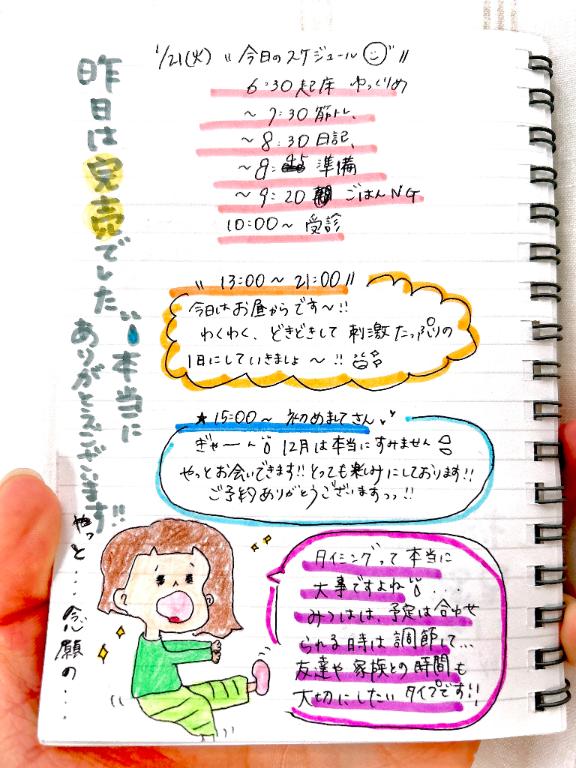 1/21(火) "今日のスケジュール"
6:30 起床 ゆっくりめ
～7:30 筋トレ、
～8:30 日記、
～9: 準備
～9:20 ごはんNG
10:00～ 受診
昨日は完売でした
本当に
ありがとうございます!!
"13:00～21:00"
今日はお昼からです～!!
わくわく、どきどきして 刺激たっぷりの
1日にしていきましょ～!!
★15:00～ 初めましてさん
ぎゃーん 12月は本当にすみません
やっとお会いできます!! とっても楽しみにしております!!
ご予約ありがとうございますっっ!!
やっと…念願の…
タイミングって本当に
大事ですよね…
みつはは、予定は合わせ
られる時は調節して…
友達や家族との時間も
大切にしたいタイプです!!